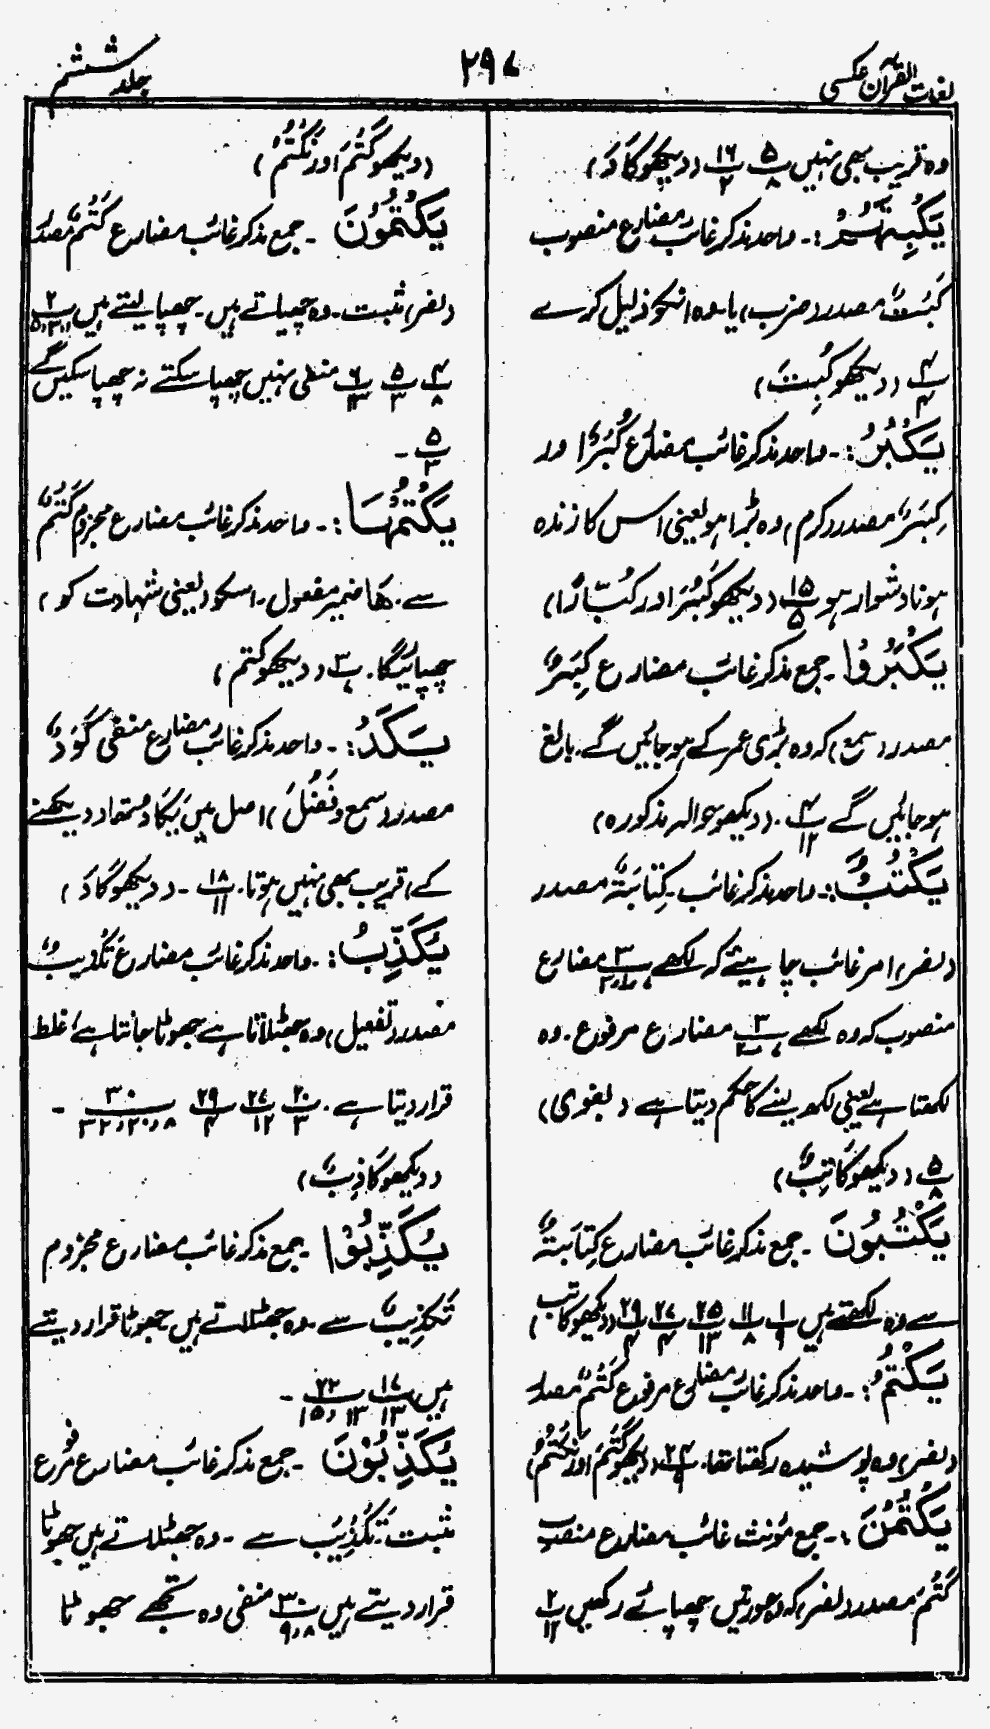 لغات القرآن عکسی
۲۹۷
جلد ششم
وہ قریب بھی نہیں ۵/۸ ۱۶/۲ (دیکھو کَادَ)
یَکْبِتَہُمْ :- واحد مذکر غائب مضارع منصوب
کَبْتٌ مصدر (ضرب) یا۔ وہ انکو ذلیل کرے
۴/۴ (دیکھو کُبِتَ)
یَکْبُرُ :- واحد مذکر غائب مضارع کُبْرٌ اور
کِبَرٌ مصدر (کرم) وہ بڑا ہو یعنی اس کا زندہ
ہونا دشوار ہو ۱۵/۵ (دیکھو کَبُرَ اور کُبَّارًا)
یَکْبَرُوْا - جمع مذکر غائب مضارع کِبَرٌ
مصدر (سمع) کہ وہ بڑی عمر کے ہو جائیں گے۔ بالغ
ہو جائیں گے ۴/۱۲ - (دیکھو حوالہ مذکورہ)
یَکْتُبُ :- واحد مذکر غائب۔ کِتَابَۃٌ مصدر
(نصر) امر غائب چاہیئے کہ لکھے ۳/۷ مضارع
منصوب کہ وہ لکھے ۳/۷ مضارع مرفوع۔ وہ
لکھتا ہے یعنی لکھ لینے کا حکم دیتا ہے (بغوی)
۵/۸ (دیکھو کَاتِبٌ)
یَکْتُبُوْنَ - جمع مذکر غائب مضارع کِتَابَۃٌ
سے وہ لکھتے ہیں ۱/۹ ۱۱/۸ ۲۵/۱۳ ۲۷/۴ ۲۹/۴ (دیکھو کاتب)
یَکْتُمُ :- واحد مذکر غائب مضارع مرفوع کَتْمٌ مصدر
(نصر) وہ پوشیدہ رکھتا تھا۔ ۲۴/۹ (دیکھو کَتَمَ اور نَکْتُمُ)
یَکْتُمْنَ :- جمع مؤنث غائب مضارع منصوب
کَتْمٌ مصدر (نصر) کہ وہ عورتیں چھپائے رکھیں ۲/۱۲
(دیکھو کَتَمَ اور نَکْتُمُ)
یَکْتُمُوْنَ - جمع مذکر غائب مضارع کَتْمٌ مصدر
(نصر) مثبت۔ وہ چھپاتے ہیں۔ چھپا لیتے ہیں ۲/۱،۳،۵
۴/۸ ۵/۳ ۶/۱۳ منفی نہیں چھپا سکتے نہ چھپا سکیں گے
۵/۳ -
یَکْتُمْہَا :- واحد مذکر غائب مضارع مجزوم کَتْمٌ
سے۔ ھَا ضمیر مفعول۔ اسکو (یعنی شہادت کو)
چھپائیگا۔ ۳/۷ (دیکھو کتم)
یَکَدْ :- واحد مذکر غائب مضارع منفی کَوْدٌ
مصدر (سمع و فَضُلَ) اصل میں یَکَادُ تھا (دیکھنے
کے) قریب بھی نہیں ہوتا۔ ۱۸/۱۱ - (دیکھو کَادَ)
یُکَذِّبُ :- واحد مذکر غائب مضارع تَکْذِیْبٌ
مصدر (تفعیل) وہ جھٹلاتا ہے جھوٹا جانتا ہے/ غلط
قرار دیتا ہے۔ ۲۰/۳ ۲۷/۱۲ ۲۹/۴ ۳۰/۸،۲۰،۳۲ -
(دیکھو کَاذِبٌ)
یُکَذِّبُوْا - جمع مذکر غائب مضارع مجزوم
تَکْذِیْبٌ سے۔ وہ جھٹلاتے ہیں جھوٹا قرار دیتے
ہیں ۱۷/۱۳ ۲۲/۱۳،۱۵ -
یُکَذِّبُوْنَ - جمع مذکر غائب مضارع مرفوع
مثبت۔ تکذیب سے - وہ جھٹلاتے ہیں جھوٹا
قرار دیتے ہیں ۳۰/۸،۹ منفی وہ تجھے جھوٹا